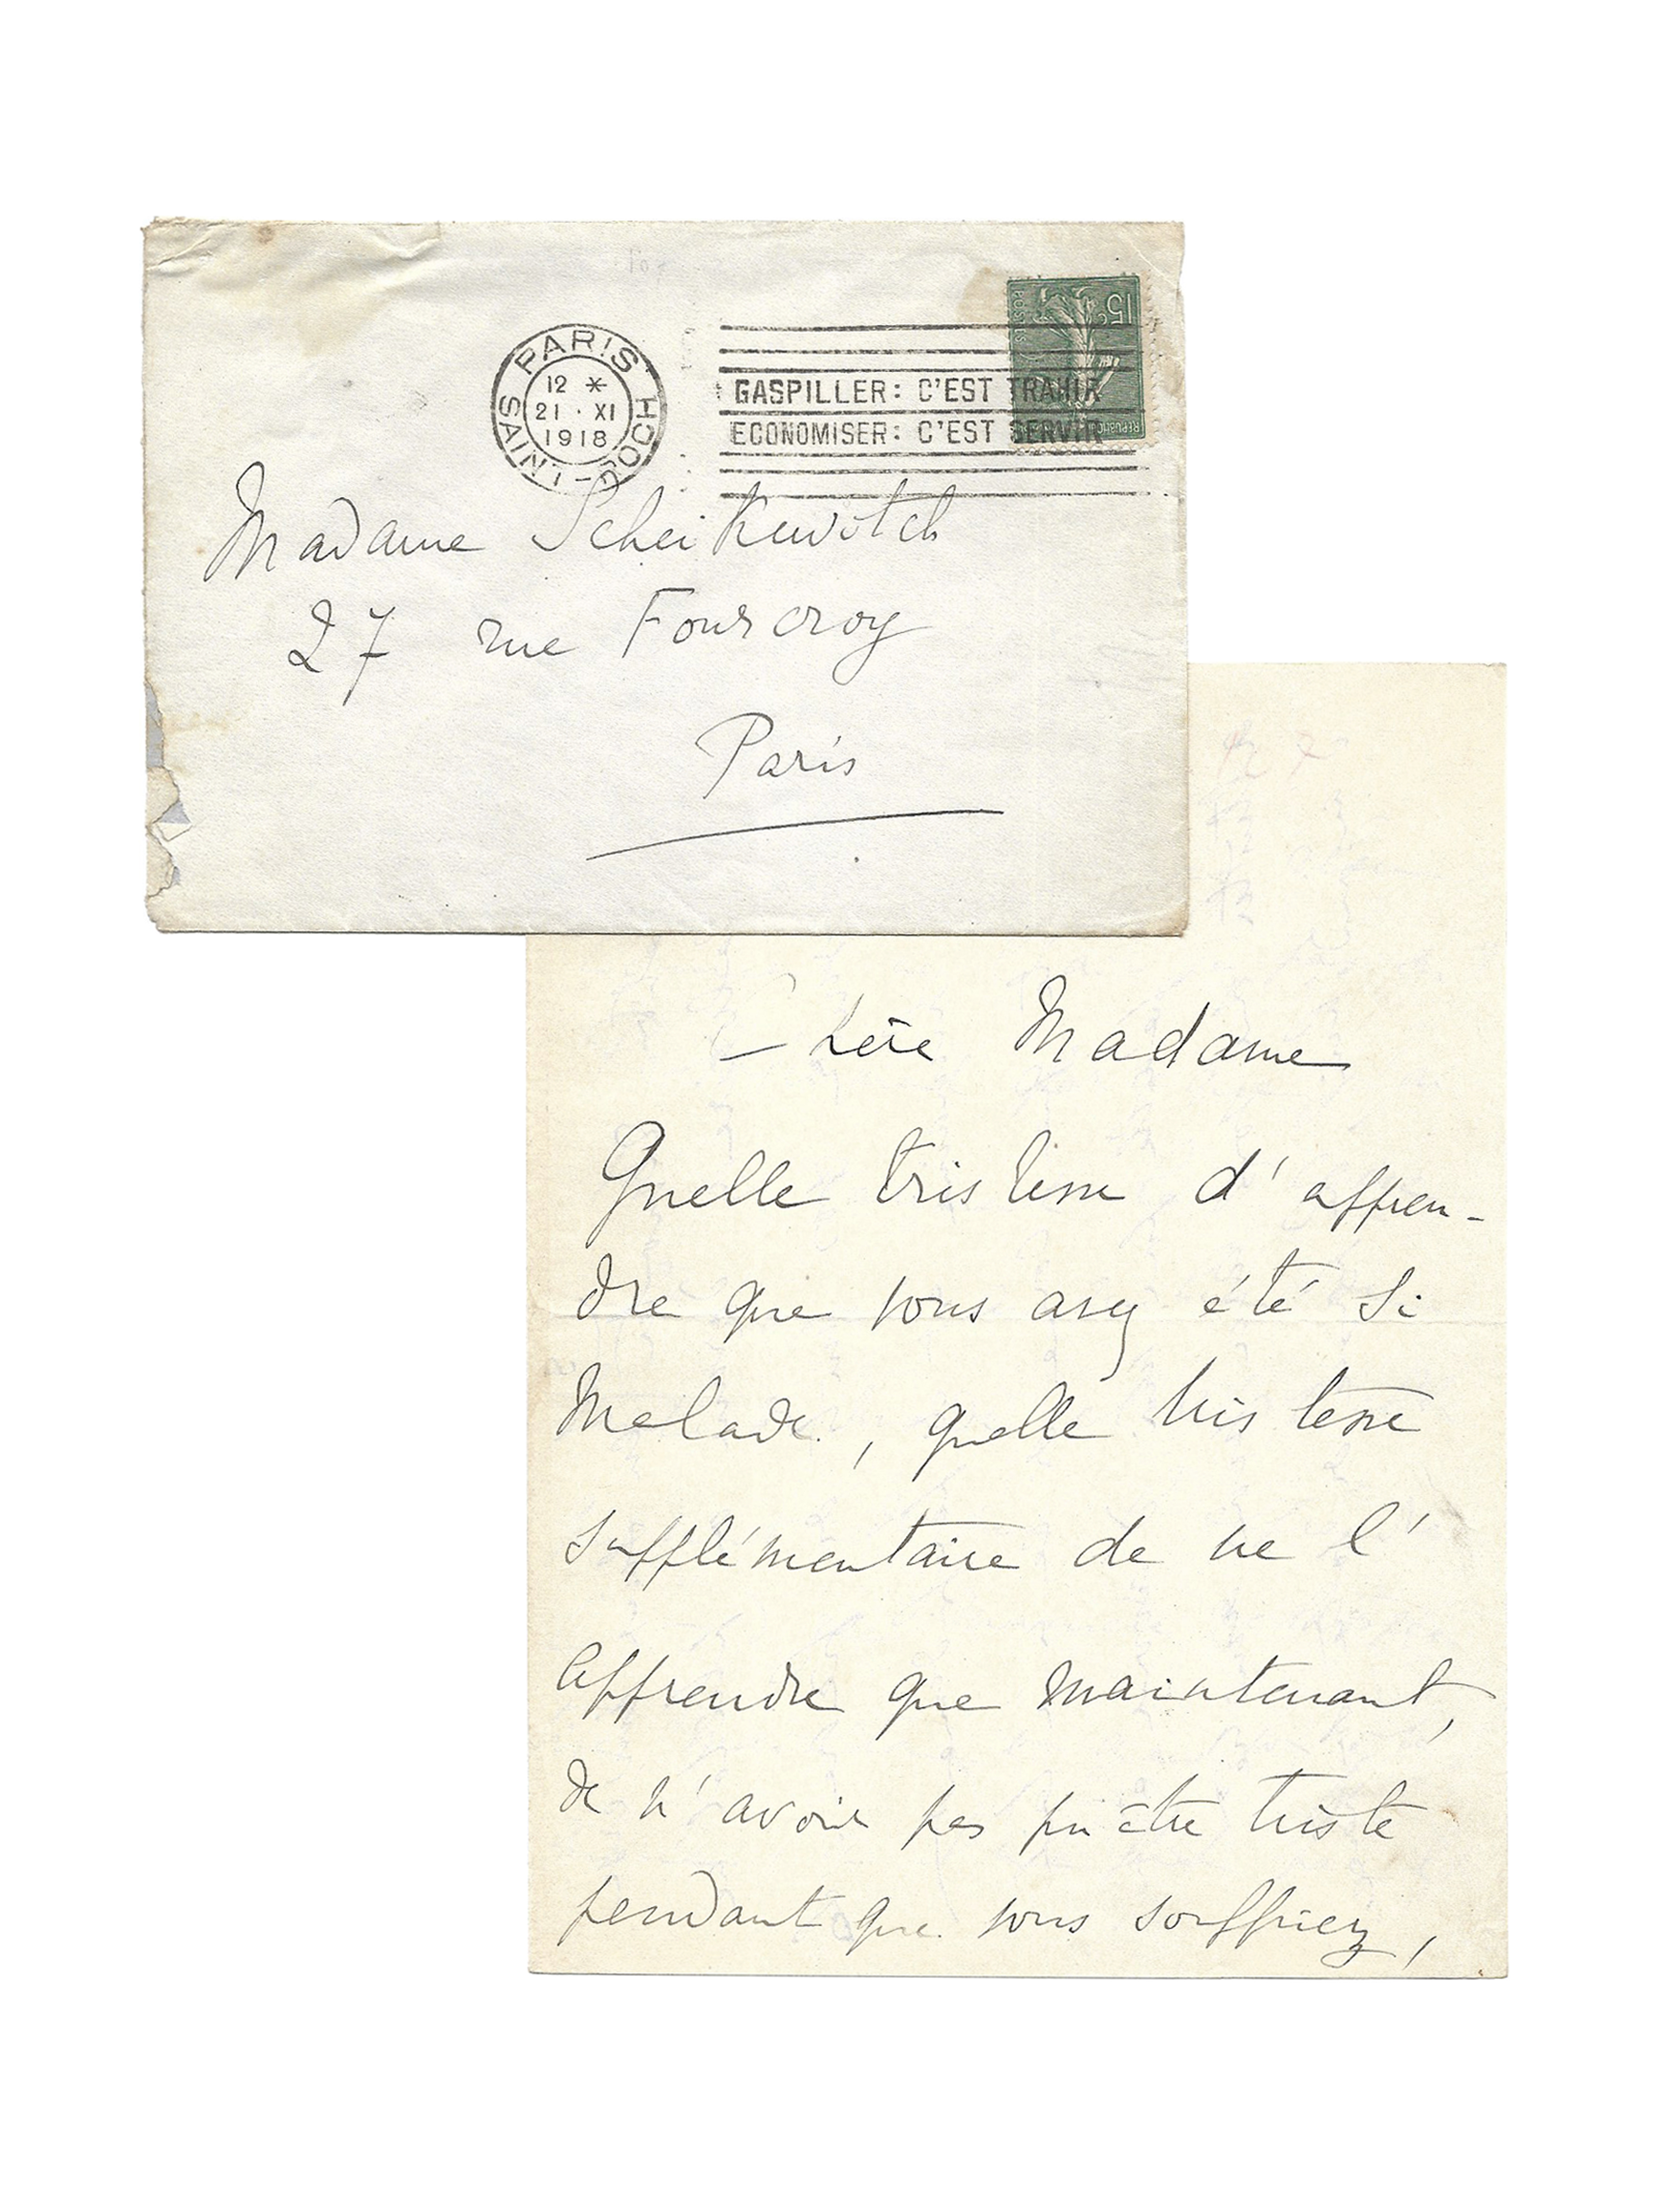 PARIS HOCHE - SAINT
12 *
21 · XI
1918
GASPILLER: C'EST TRAHIR
ECONOMISER: C'EST SERVIR
15c
POSTES
Madame Scheikewitch
27 rue Fourcroy
Paris
Chère Madame
Quelle tristesse d'appren-
dre que vous avez été si
malade, quelle tristesse
supplémentaire de ne l'
apprendre que maintenant,
de n'avoir pas pu être triste
pendant que vous souffriez,